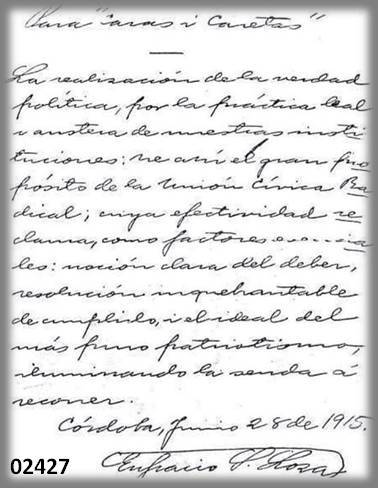 Para "Caras i Caretas"
La realización de la verdad
política, por la práctica leal
i austera de nuestras insti
tuciones: he ahí el gran pro
pósito de la Unión Cívica Ra
dical; cuya efectividad re
clama, como factores esencia
les: noción clara del deber,
resolución inquebrantable
de cumplirlo, i el ideal del
más puro patriotismo,
iluminando la senda á
recorrer.
Córdoba, Junio 28 de 1915.
Eufracio S. Loza
02427